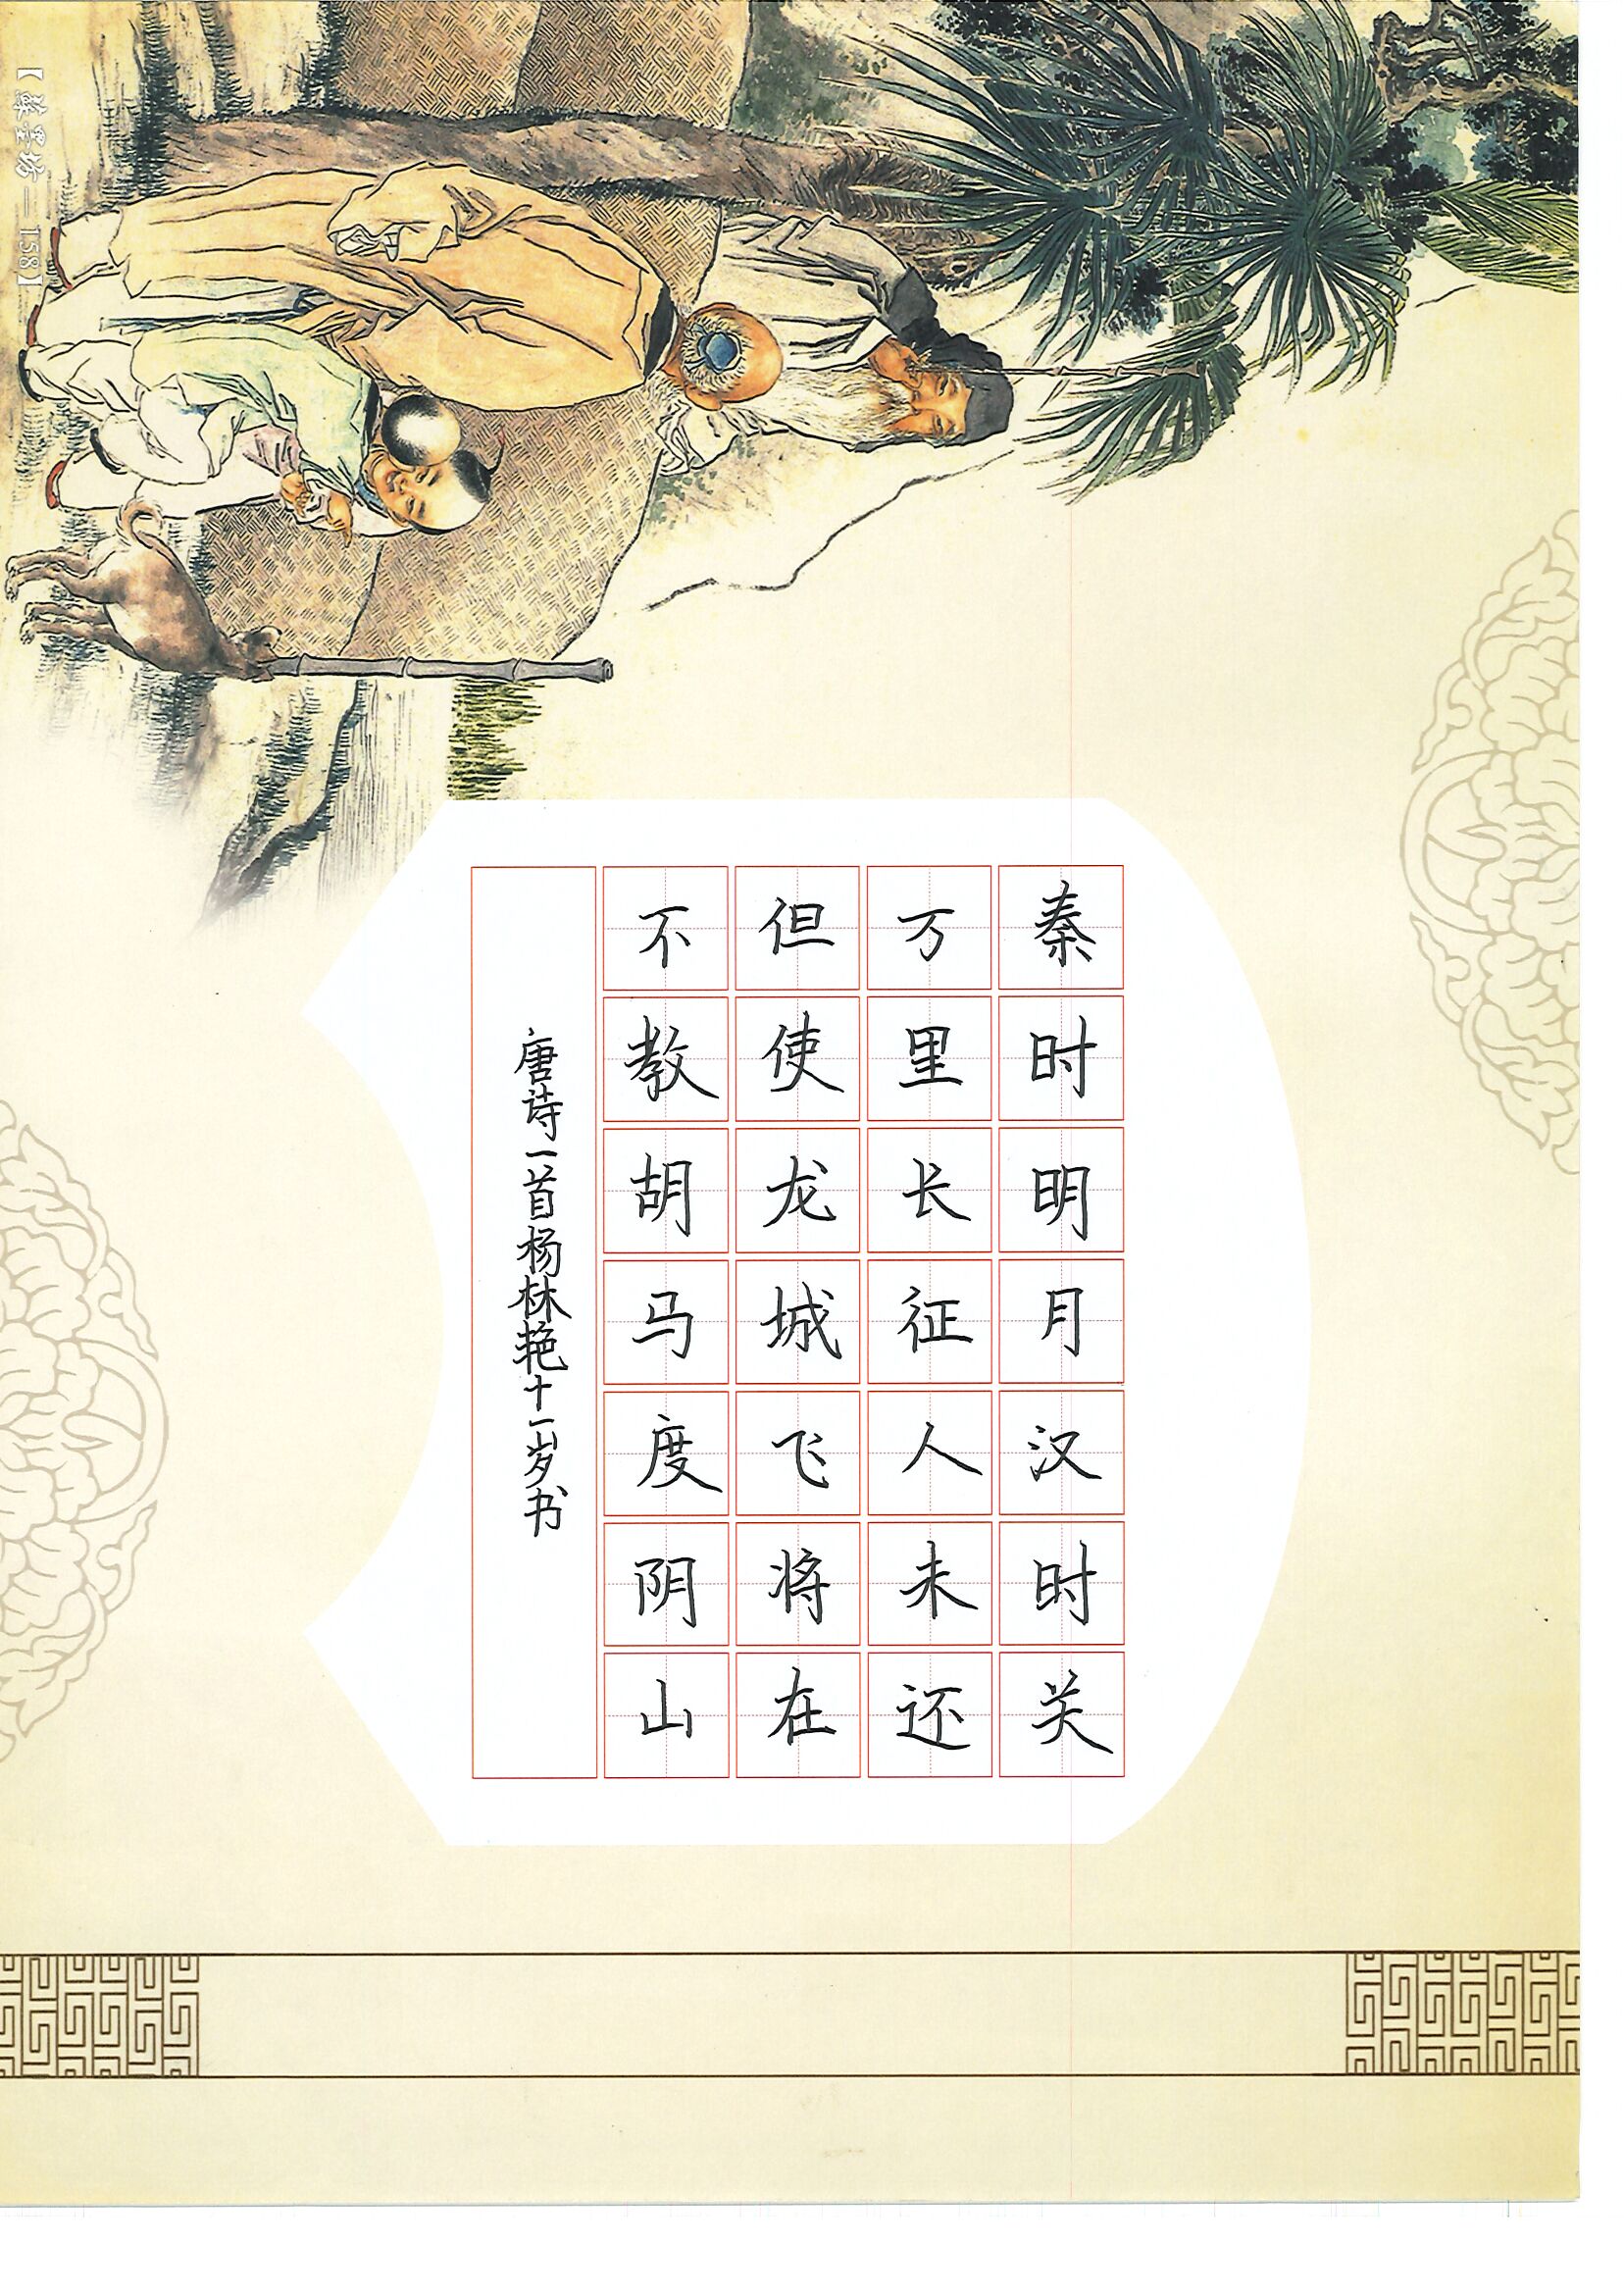 秦时明月汉时关
万里长征人未还
但使龙城飞将在
不教胡马度阴山
唐诗一首杨林艳十一岁书